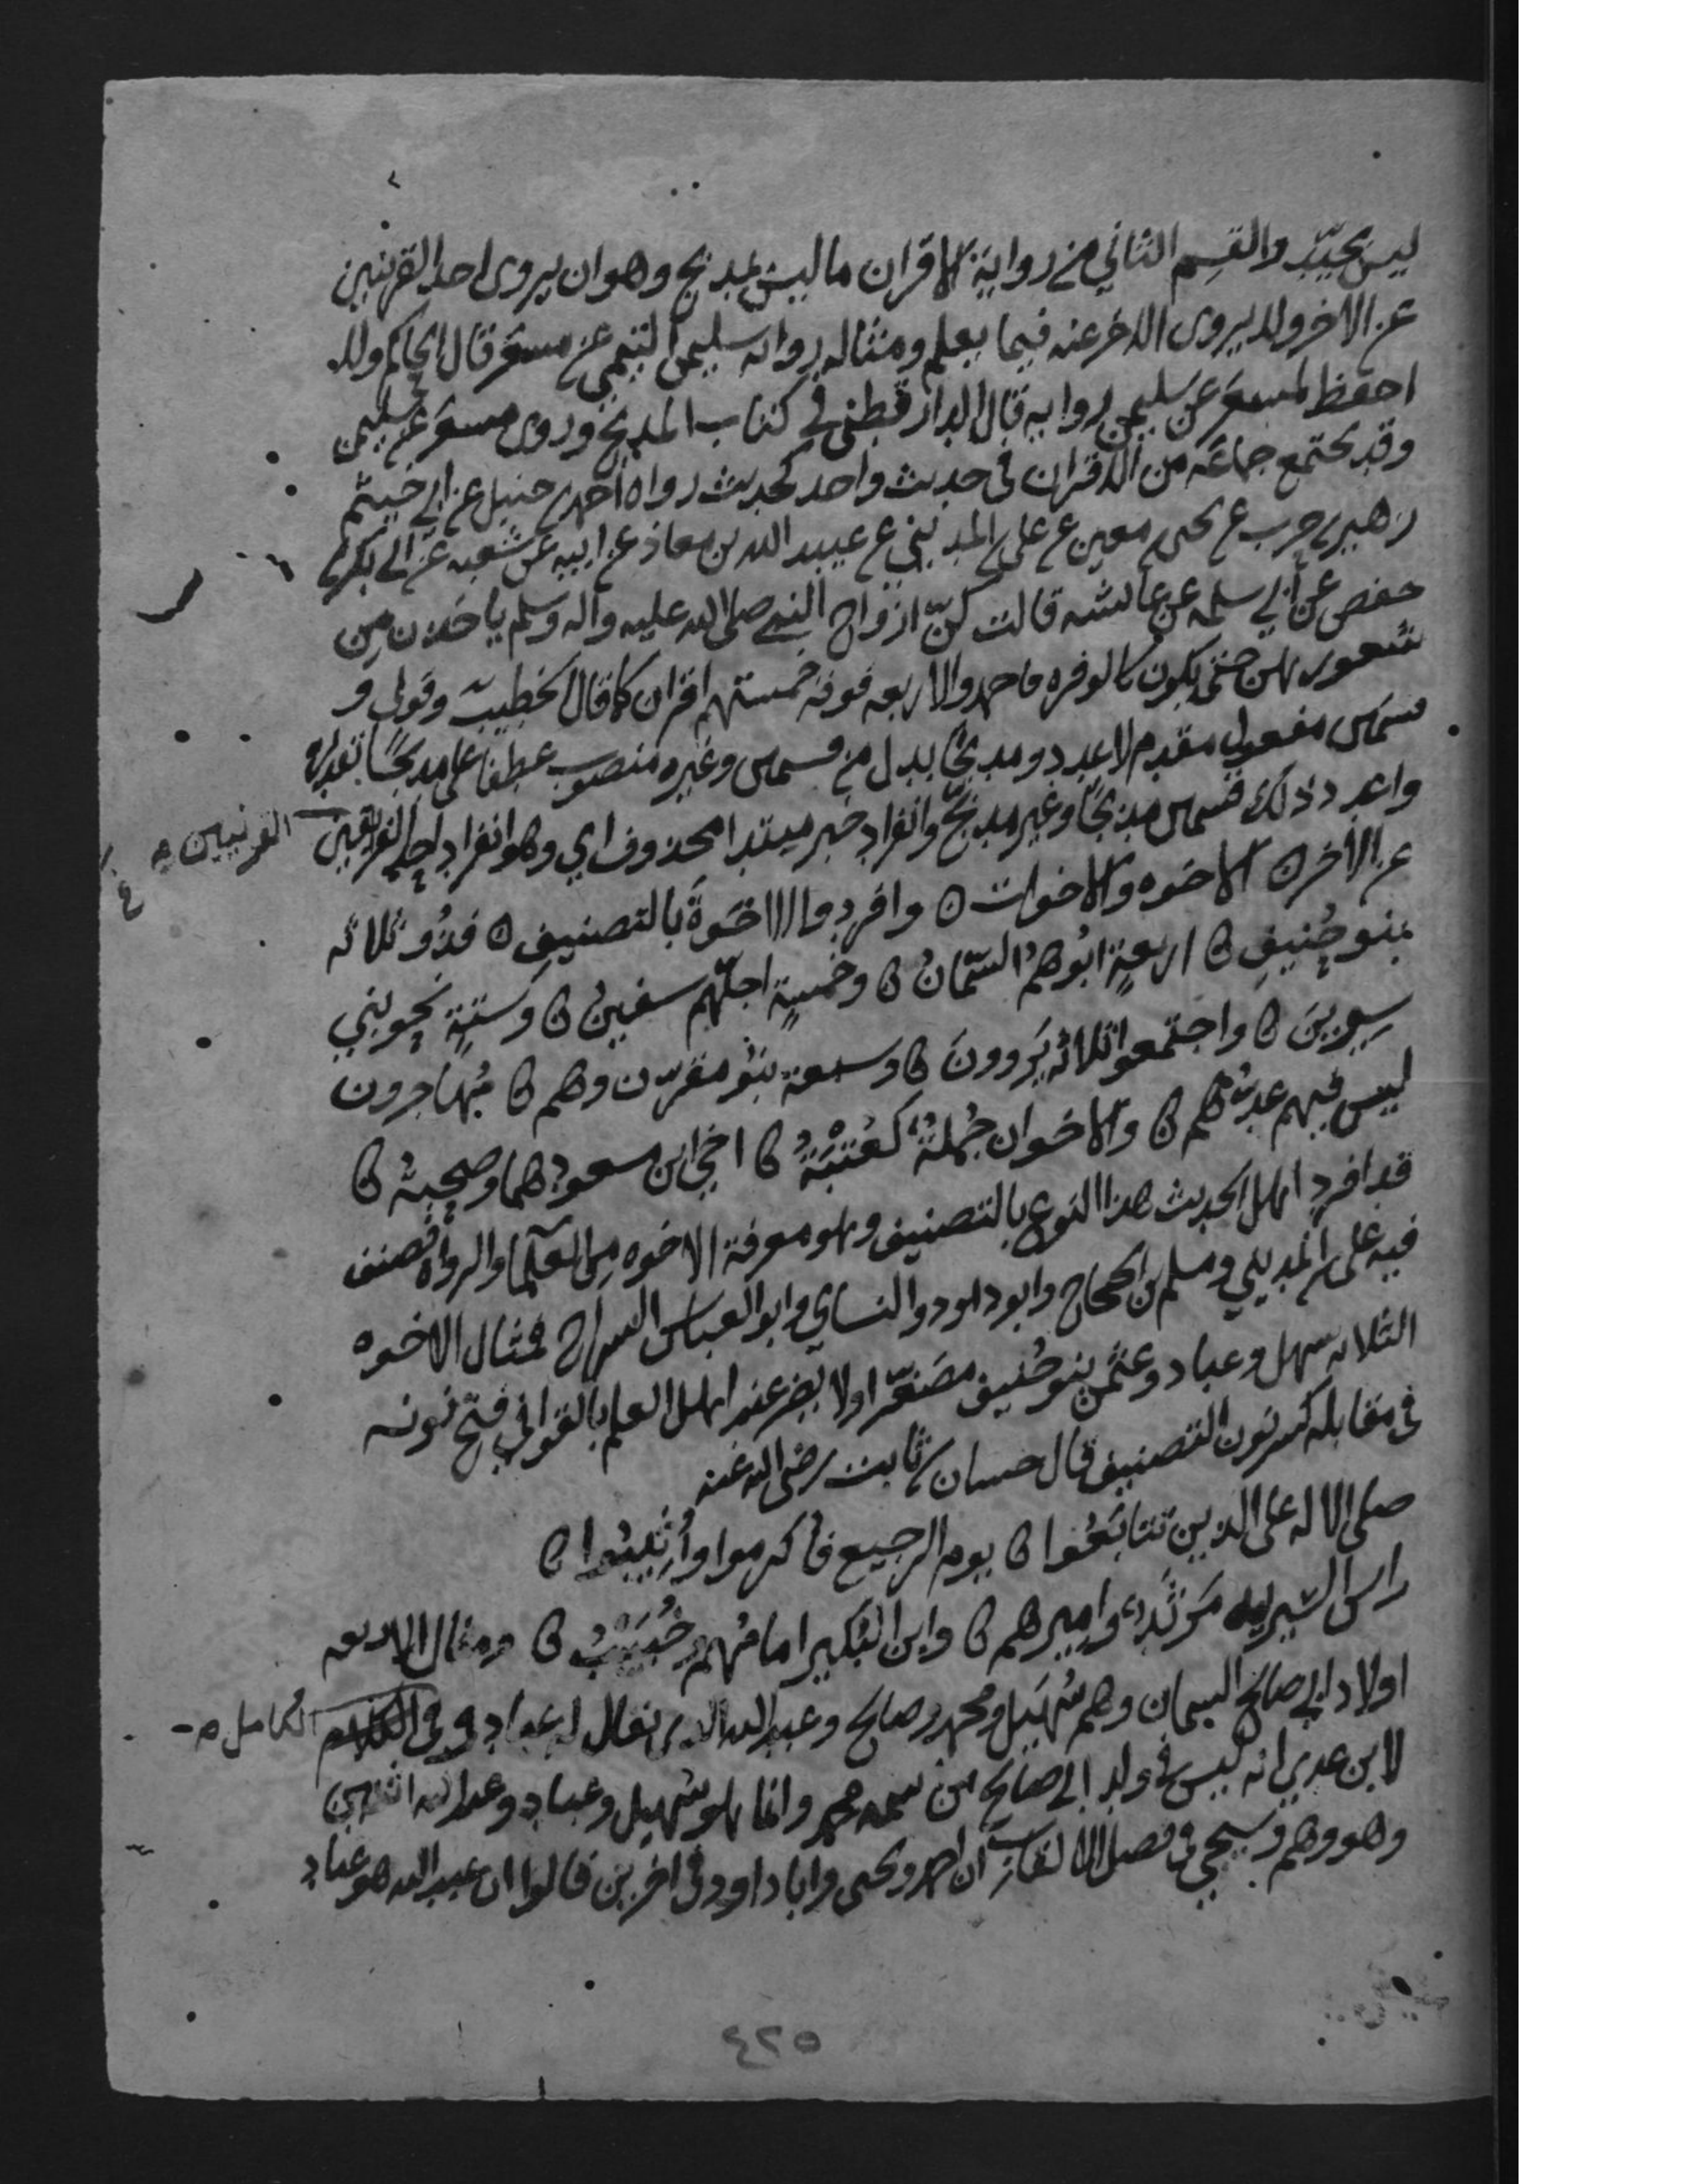 ليس بجيد والقسم الثاني من رواية الاقران ما ليس بمدبج وهو ان يروى احد القرينين
عن الاخر ولا يروى الاخر عنه فيما يعلم ومثاله رواية سليمن التيمي عن مسعر قال الحاكم ولا
احفظ لمسعر عن سليمن رواية قال الدارقطني في كتاب المدبج وروى مسعر عن سليمن
وقد يجتمع جماعة من الاقران في حديث واحد كحديث رواه احمد بن حنبل عن ابي خيثم
زهير بن حرب عن يحيى بن معين عن علي بن المديني عن عبيد الله بن معاذ عن ابيه عن شعبه عن ابي بكر بن
حفص عن ابي سلمه عن عائشه قالت كنّ ازواج النبي صلى الله عليه واله وسلم ياخذن من
شعورهن حتى يكون كالوفره فاحمد والاربعه فوقه خمستهم اقران كما قال الخطيب وقولي و
قسمين مفعول مقدم لاعدد ومدبجًا بدل من قسمين وغيره منصوب عطفا على مدبجًا تقديره
واعدد ذلك قسمين مدبجًا وغير مدبج وانفراد خبر مبتدا محذوف اي وهو انفراد احد الفريقين
القرنيين
عن الاخر ه الاخوه والاخوات ه وافردوا الاخوة بالتصنيف ه فذو ثلاثه
بنو حنيف ه اربعةٍ ابوهم السّمّان ه وخمسةٍ اجلّهم سفين ه وستةٍ نحو بني
سيرين ه واجتمعوا ثلاثة يَروون ه وسبعة بنو مقرن وهم ه مهاجرون
ليس فيهم عدّهم ه والاخوان جُملةٌ كعُتبَةُ ه اخي ابن مسعود هما وصحبه ه
قد افرد اهل الحديث هذا النوع بالتصنيف وهو معرفة الاخوه من العلما والرواه فصنف
فيه على بن المديني ومسلم بن الحجاج وابو داود والنساي وابو العباس السراج فمثال الاخوه
الثلاثه سهل وعباد وعثمن بنو حُنيف مصَغّر اولا يضر عند اهل العلم بالقوافي فتح نونه
في مقابله كسر نون التصنيف قال حسان بن ثابت رضى الله عنه
صلى الاله على الذين تتابَعُوا ه يوم الرجيع فاكرموا وأُثيبُوا ه
راس السريه مَرثَدٌ واميرهم ه وابن البُكير امامُهم وخُبَيبُ ه ومثال الاربعه
اولاد ابي صالح السمان وهم سُهَيل ومحمد وصالح وعبد الله الذي يقال له عباد وفي
الكامل
لابن عدي انه ليس في ولد ابي صالح من سمه محمد وانما هو سُهيل وعباد وعبد الله اثنين
وهو وهم وسيجي في فصل الالقاب ان احمد ويحيى وابا داود في اخرين قالوا ان عبد الله هو عباد
٤٢٥